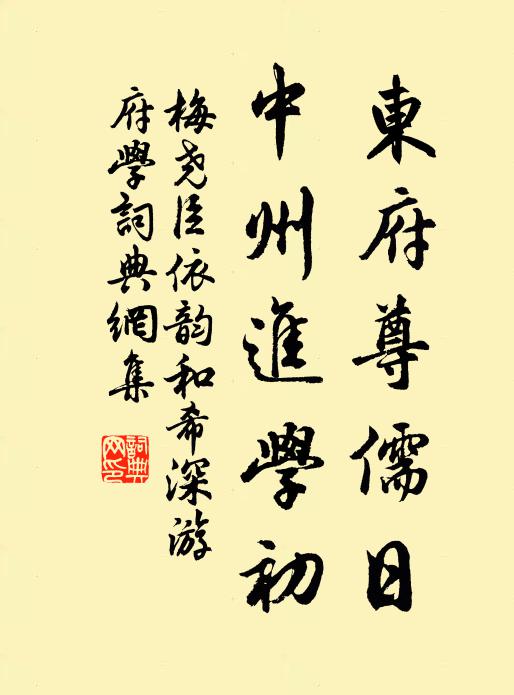 東府尊儒日
中州進學初
梅尧臣依韵和希深游
府學詞典網集
詞典网印